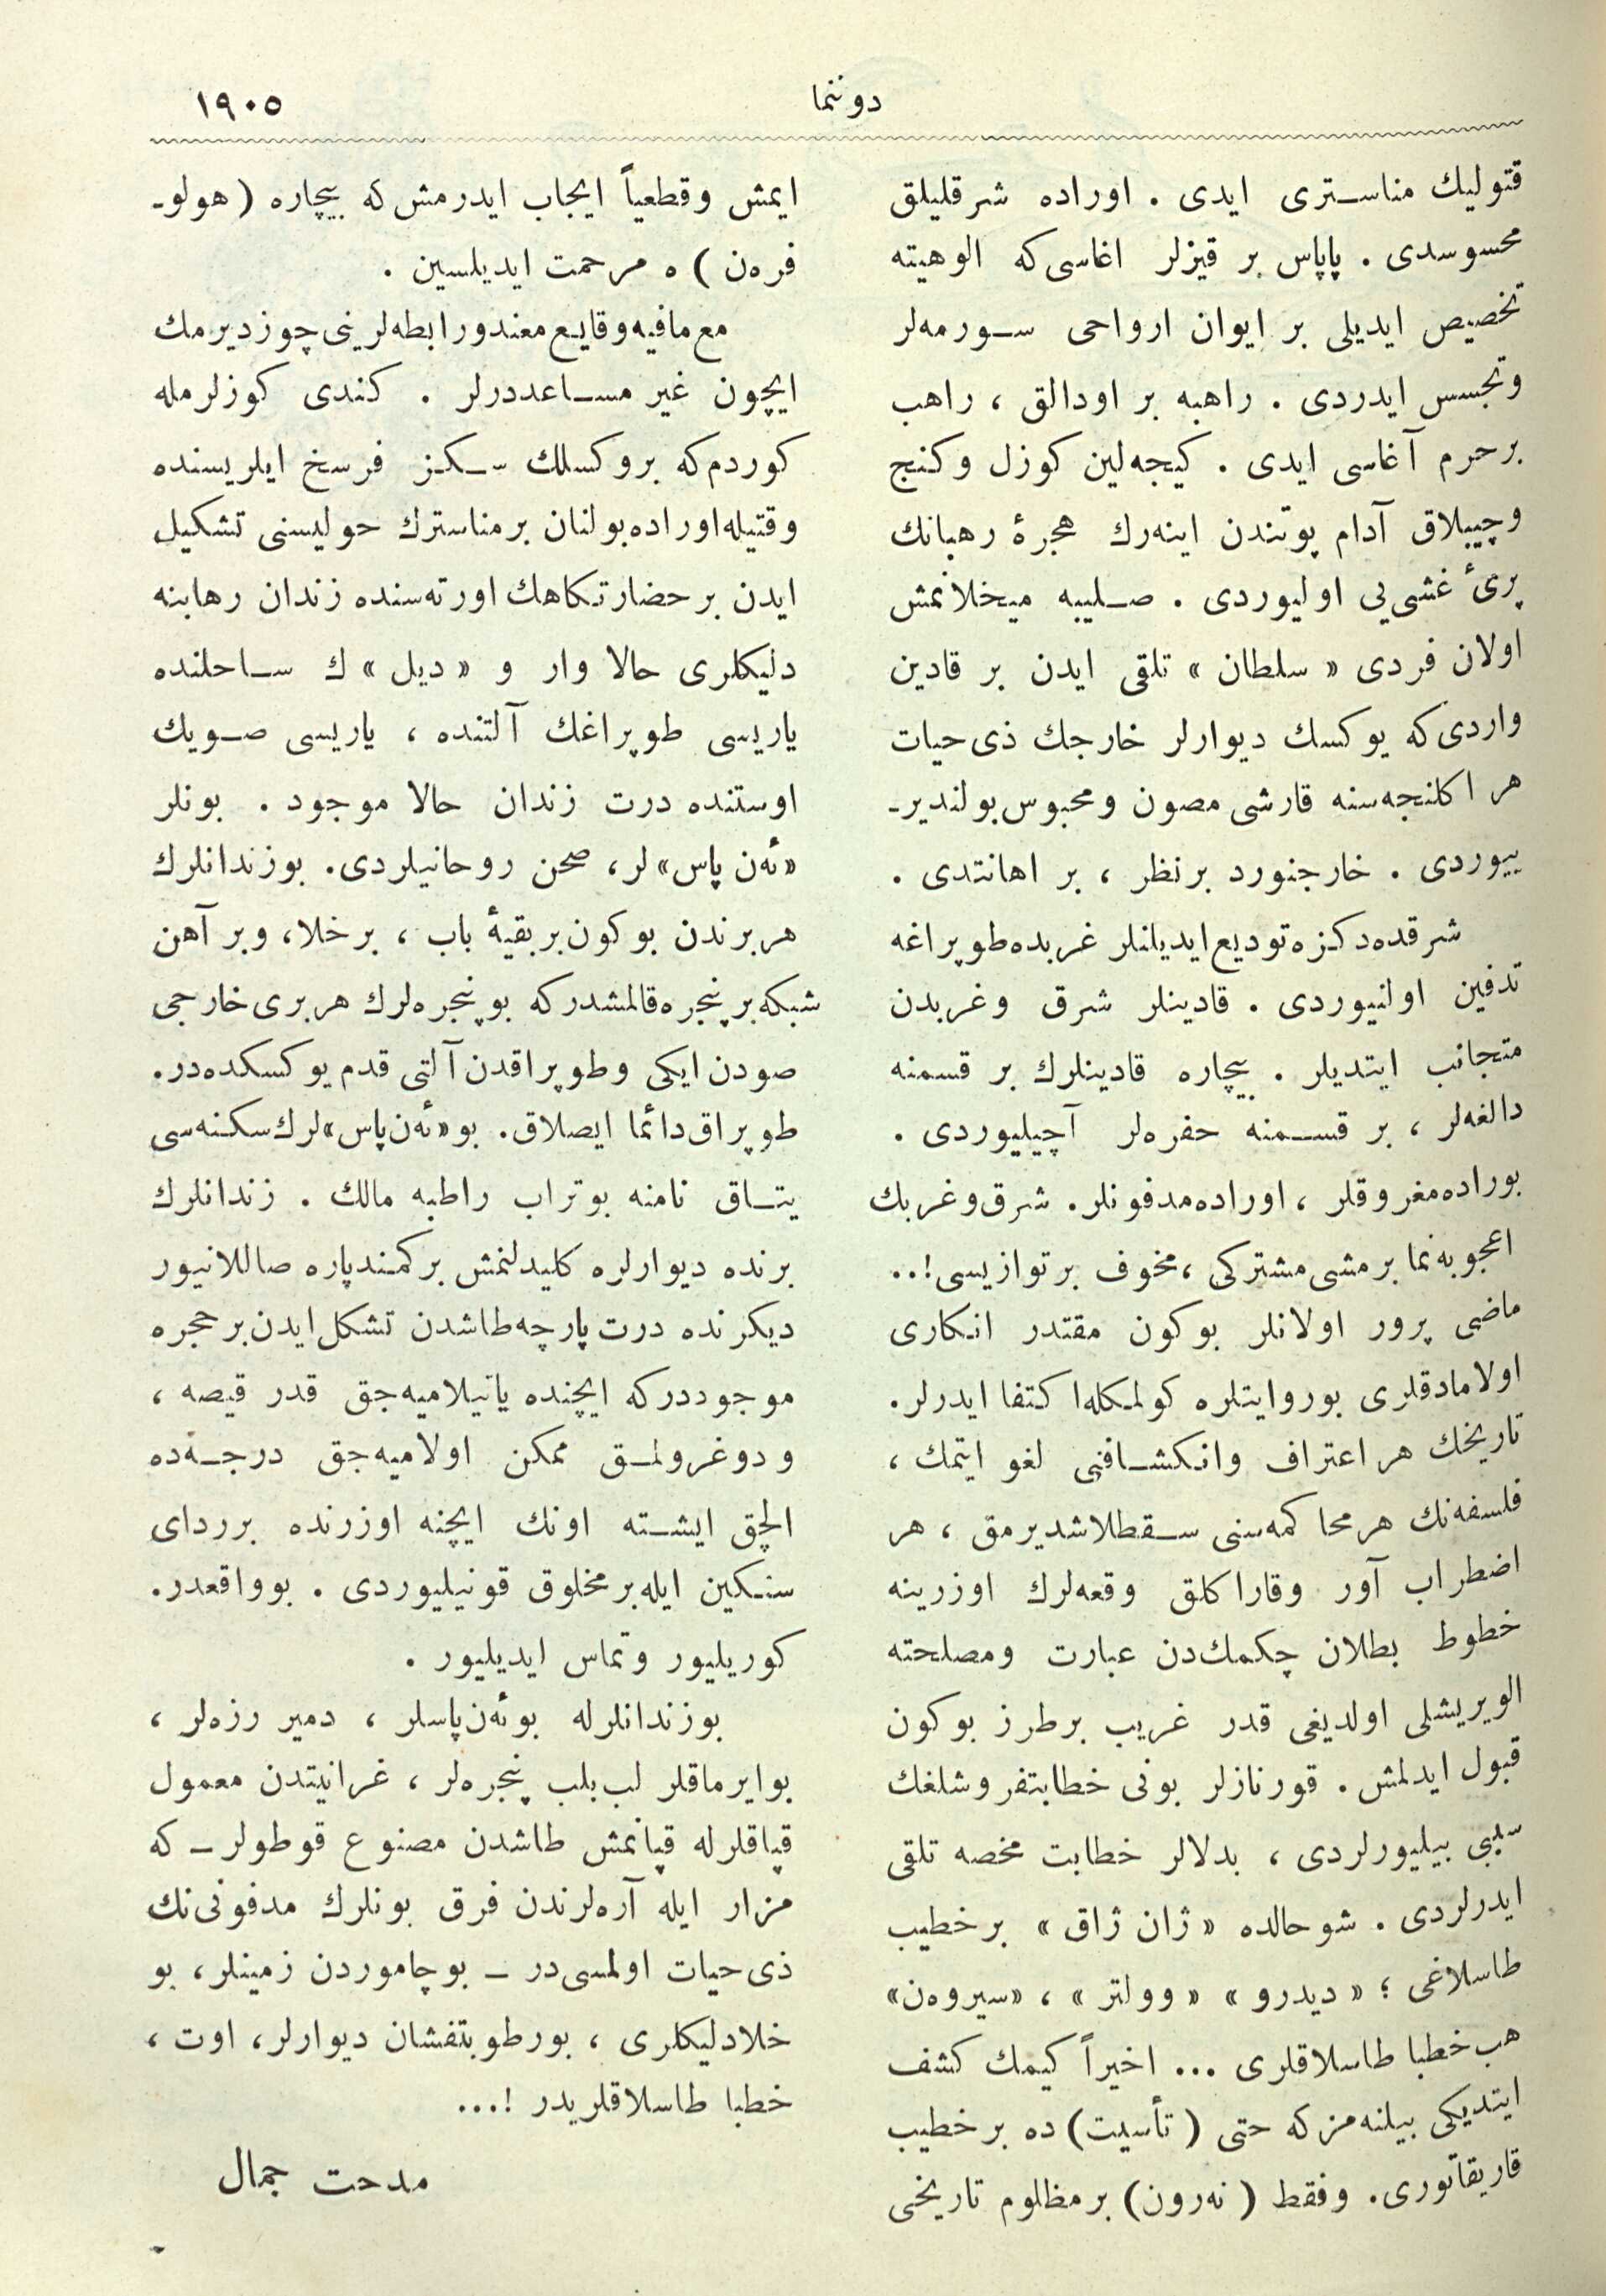 دوننما
١٩٠٥
قتوليك مناستری ايدی . اوراده شرقليلق
محسوسدی . پاپاس بر قيزلر اغاسی‌كه الوهيته
تخصيص ايديلی بر ايوان ارواحی سورمه‌لر
وتجسس ايدردی . راهبه بر اودالق ، راهب
برحرم آغاسی ايدی . كيجه‌لين كوزل وكنج
وچيپلاق آدام پوتندن اينه‌رك هجرهٔ رهبانك
پریٔ غشی‌يی اوليوردی . صليبه ميخلانمش
اولان فردی « سلطان » تلقی ايدن بر قادين
واردی‌كه يوكسك ديوارلر خارجك ذی‌حيات
هر اكلنجه‌سنه قارشی مصون ومحبوس بولندير-
ييوردی . خارجنورد برنظر ، بر اهانتدی .
شرقده‌دكزه توديع ايديلنلر غربده‌طوپراغه
تدفين اولنيوردی . قادينلر شرق وغربدن
متجانب ايتديلر . بيچاره قادينلرك بر قسمنه
دالغه‌لر ، بر قسمنه حفره‌لر آچيليوردی .
بوراده‌مغروقلر ، اوراده‌مدفونلر. شرق‌وغربك
اعجوبه‌نما برمشی مشتركی ، مخوف بر توازيسی!..
ماضی پرور اولانلر بوكون مقتدر انكاری
اولامادقلری بوروايتلره كولمكله‌ا كتفا ايدرلر.
تاريخك هر اعتراف وانكشافنی لغو ايتمك ،
فلسفه‌نك هرمحاكمه‌سنی سقطلاشديرمق ، هر
اضطراب آور وقاراكلق وقعه‌لرك اوزرينه
خطوط بطلان چكمك‌دن عبارت ومصلحته
الويريشلی اولديغی قدر غريب برطرز بوكون
قبول ايدلمش . قورنازلر بونی خطابتفروشلغك
سببی بيليورلردی ، بدلالر خطابت محضه تلقی
ايدرلردی . شو حالده « ژان ژاق » بر خطيب
طاسلاغی ؛ « ديدرو » « وولتر » ، «سيروه‌ن»
هب خطبا طاسلاقلری ... اخيراً كيمك كشف
ايتديكی بيلنه‌مز كه حتی ( تأسيت) ده بر خطيب
قاريقاتوری. وفقط ( نه‌رون) بر مظلوم تاريخی
ايمش وقطعياً ايجاب ايدرمش كه بيچاره ( هولو-
فره‌ن ) ه مرحمت ايديلسين .
مع‌مافيه وقايع معندور ابطه‌لرينی چوزديرمك
ايچون غير مساعددرلر . كندی كوزلرمله
كوردم‌كه بروكسلك سكز فرسخ ايلريسنده
وقتيله اوراده بولنان برمناسترك حوليسنی تشكيل
ايدن بر حضارتكاهك اورته‌سنده زندان رهابنه
دليكلری حالا وار و « ديل » ك ساحلنده
ياريسی طوپراغك آلتنده ، ياريسی صويك
اوستنده درت زندان حالا موجود . بونلر
«ئه‌ن پاس» لر، صحن روحانيلردی. بوزندانلرك
هر برندن بوكون بر بقيهٔ باب ، برخلا، وبر آهن
شبكه بر پنجره قالمشدركه بو پنجره‌لرك هر بری خارجی
صودن ايكی وطوپراقدن آلتی قدم يوكسكده‌در.
طوپراق دائما ايصلاق. بو «ئه‌ن پاس» لرك سكنه‌سی
يتاق نامنه بوتراب راطبه مالك . زندانلرك
برنده ديوارلره كليدلنمش بركمندپاره صاللانيور
ديكرنده درت پارچه طاشدن تشكل ايدن برحجره
موجوددر كه ايچنده ياتيلاميه‌جق قدر قيصه ،
ودوغرولمق ممكن اولاميه‌جق درجه‌ده
الچق ايشته اونك ايچنه اوزرنده برردای
سنكين ايله بر مخلوق قونيليوردی . بوواقعدر.
كوريليور وتماس ايديليور .
بوزندانلرله بوئه‌ن‌پاسلر ، دمير رزه‌لر ،
بوايرماقلر لب‌بلب پنجره‌لر ، غرانيتدن معمول
قپاقلرله قپانمش طاشدن مصنوع قوطولر ـ كه
مزار ايله آره‌لرندن فرق بونلرك مدفونی‌نك
ذی‌حيات اولمسی‌در ـ بوچاموردن زمينلر، بو
خلادليكلری ، بورطوبتفشان ديوارلر، اوت ،
خطبا طاسلاقلريدر !...
مدحت جمال